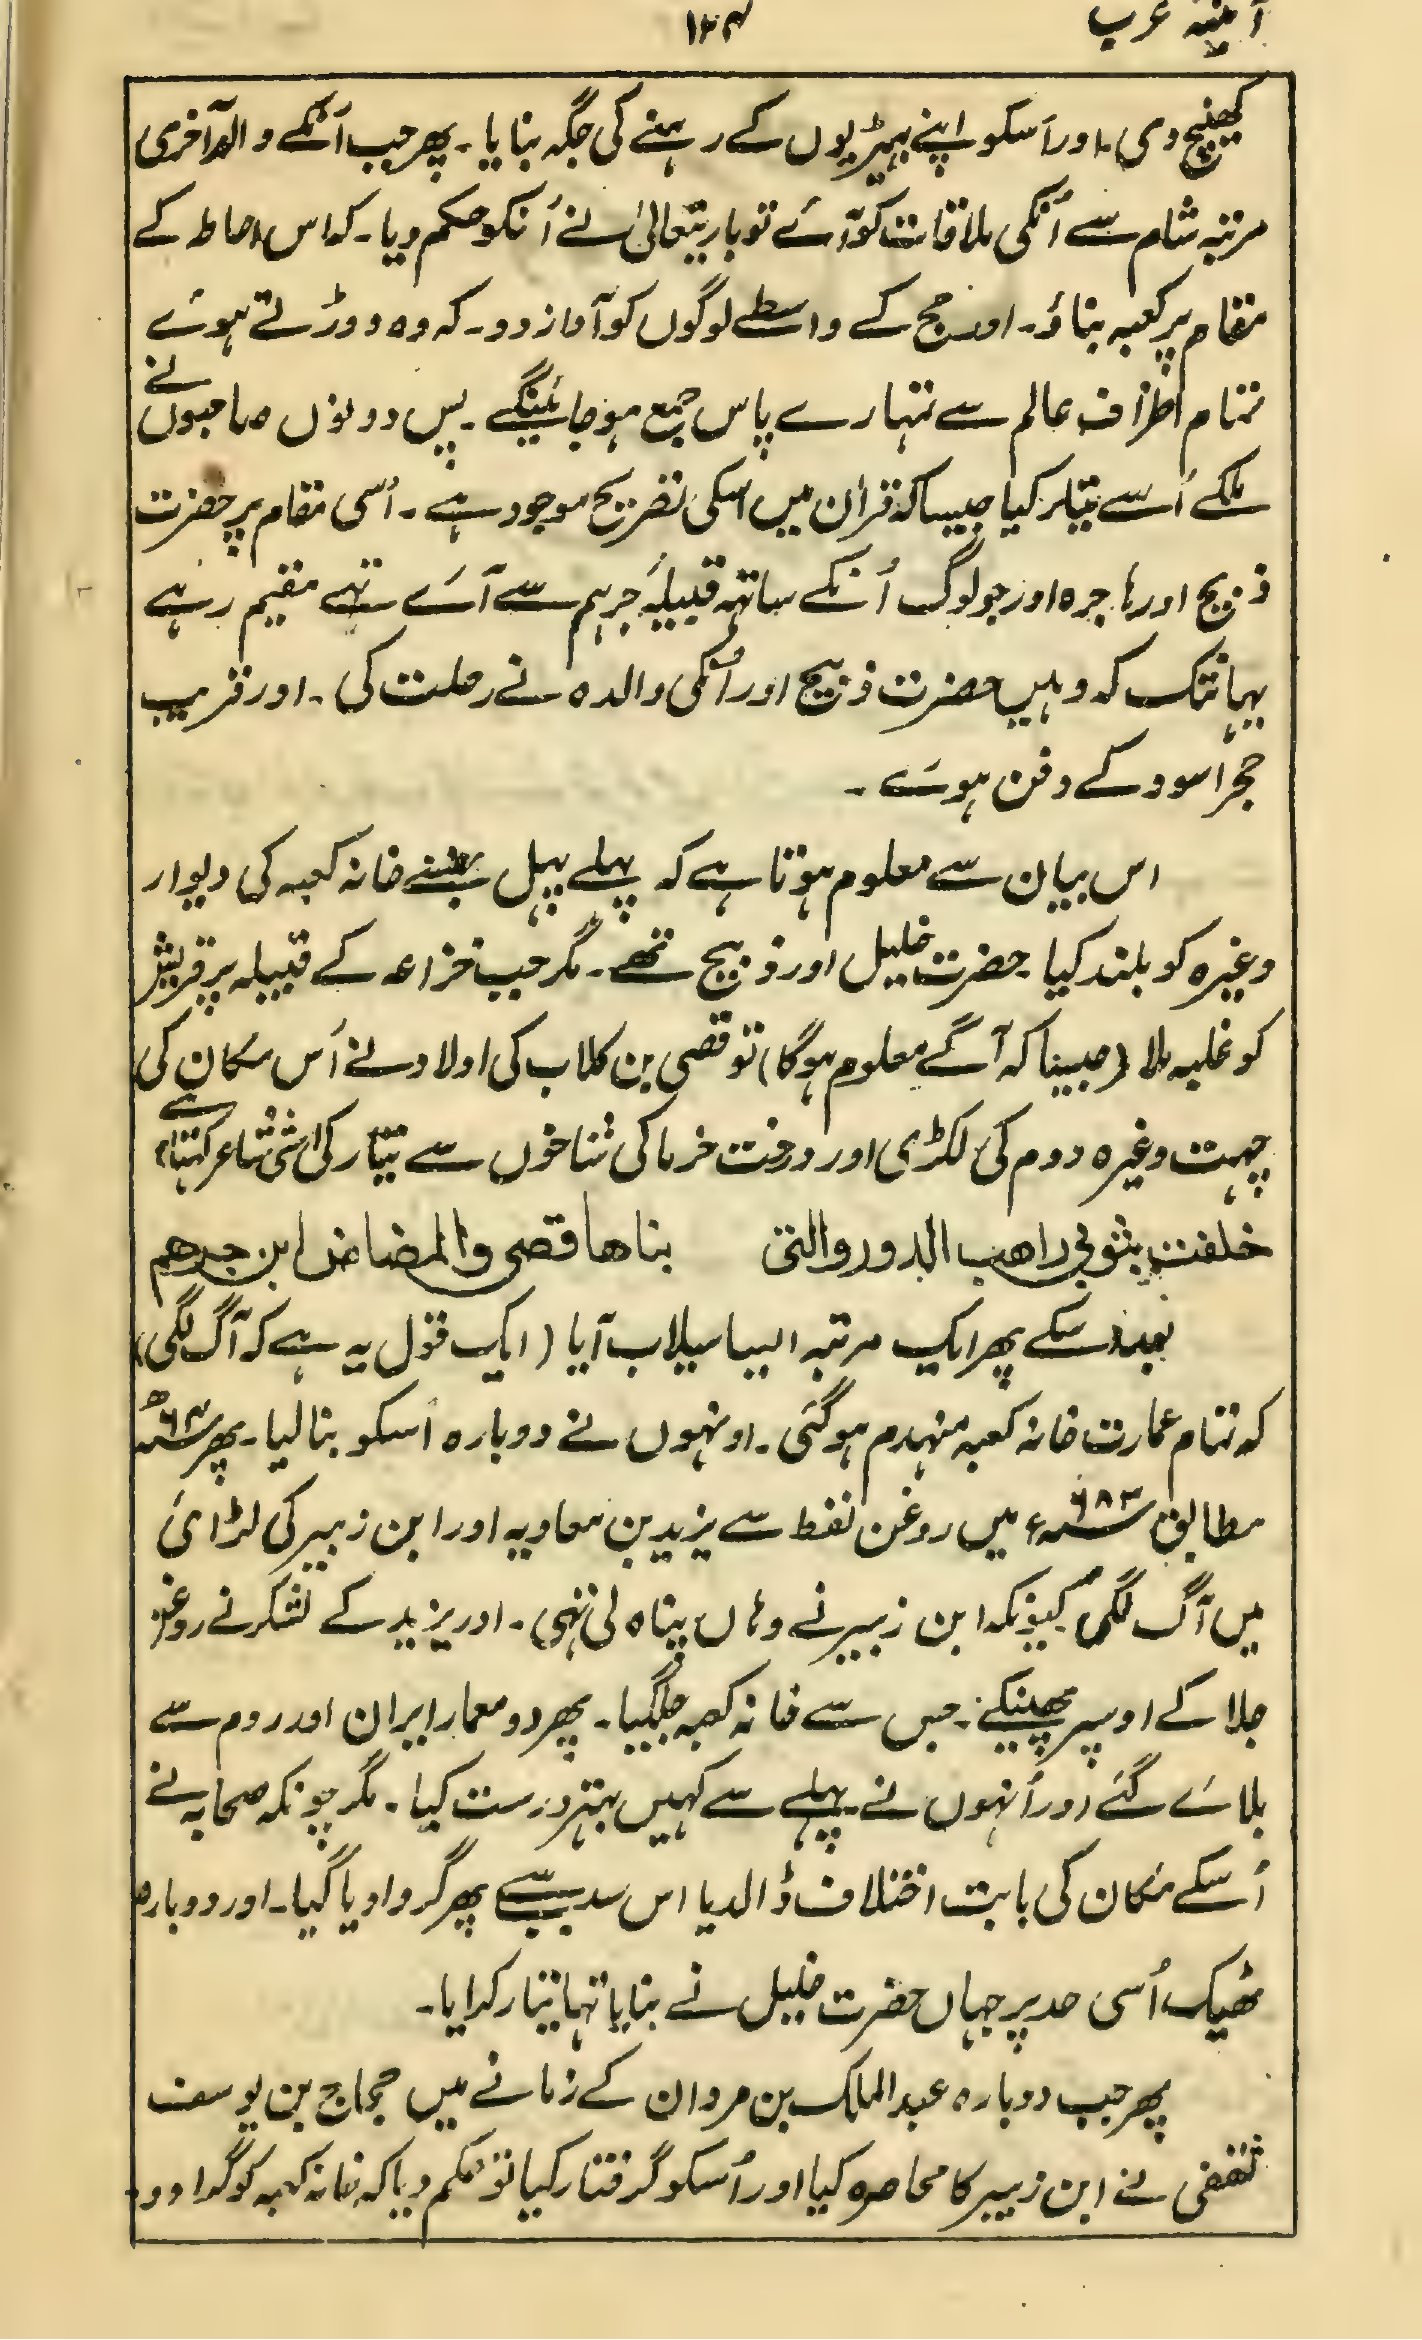 آئینہ عرب
۱۲۴
کھینچ دی۔ اور اُسکو اپنے بہیڑیوں کے رہنے کی جگہ بنایا۔ پھر جب اُنکے والد آخری
مرتبہ شام سے اُنکی ملاقات کو آئے تو باریتعالیٰ نے اُنکو حکم دیا۔ کہ اس احاطہ کے
مقام پر کعبہ بناؤ۔ اور حج کے واسطے لوگوں کو آواز دو۔ کہ وہ دوڑتے ہوئے
تمام اطراف عالم سے تمہارے پاس جمع ہو جائینگے۔ پس دونوں صاحبوں نے
ملکے اُسے تیار کیا جیسا کہ قرآن میں اسکی تصریح موجود ہے۔ اُسی مقام پر حضرت
ذبیح اور ہاجرہ اور جو لوگ اُنکے ساتہہ قبیلۂ جرہم سے آئے تہے مقیم رہے
یہانتک کہ وہیں حضرت ذبیح اور اُنکی والدہ نے رحلت کی۔ اور قریب
حجر اسود کے دفن ہوئے۔
اس بیان سے معلوم ہوتا ہے کہ پہلے پہل جسنے خانہ کعبہ کی دیوار
وغیرہ کو بلند کیا حضرت خلیل اور ذبیح تھے۔ مگر جب خزاعہ کے قبیلہ پر قریش
کو غلبہ ملا (جیسا کہ آگے معلوم ہوگا) تو قصی بن کلاب کی اولاد نے اُس مکان کی
چہت وغیرہ دوم کی لکڑی اور درخت خرما کی شاخوں سے تیار کی اعشی شاعر کہتا ہے
حلفت بثوبی راهب الدور والتی بناها قصی والمضاض ابن جرهم
بعد اسکے پھر ایک مرتبہ ایسا سیلاب آیا (ایک قول یہ ہے کہ آگ لگی)
کہ تمام عمارت خانہ کعبہ منہدم ہو گئی۔ اونہوں نے دوبارہ اُسکو بنا لیا۔ پھر ۶۴ھ
مطابق ۶۸۳ء میں روغن نفط سے یزید بن معاویہ اور ابن زبیر کی لڑائی
میں آگ لگی کیونکہ ابن زبیر نے وہاں پناہ لی تہی۔ اور یزید کے لشکر نے روغن
جلا کے اوسپر پھینکے۔ جس سے خانہ کعبہ جلگیا۔ پھر دو معمار ایران اور روم سے
بلائے گئے اور اُنہوں نے پہلے سے کہیں بہتر درست کیا۔ مگر چونکہ صحابہ نے
اُسکے مکان کی بابت اختلاف ڈالدیا اس سبب سے پھر گروا دیا گیا۔ اور دوبارہ
ٹھیک اُسی حد پر جہاں حضرت خلیل نے بنایا تہا تیار کرایا۔
پھر جب دوبارہ عبدالملک بن مروان کے زمانے میں حجاج بن یوسف
ثقفی نے ابن زبیر کا محاصرہ کیا اور اُسکو گرفتار کیا تو حکم دیا کہ خانہ کعبہ کو گرا دو۔